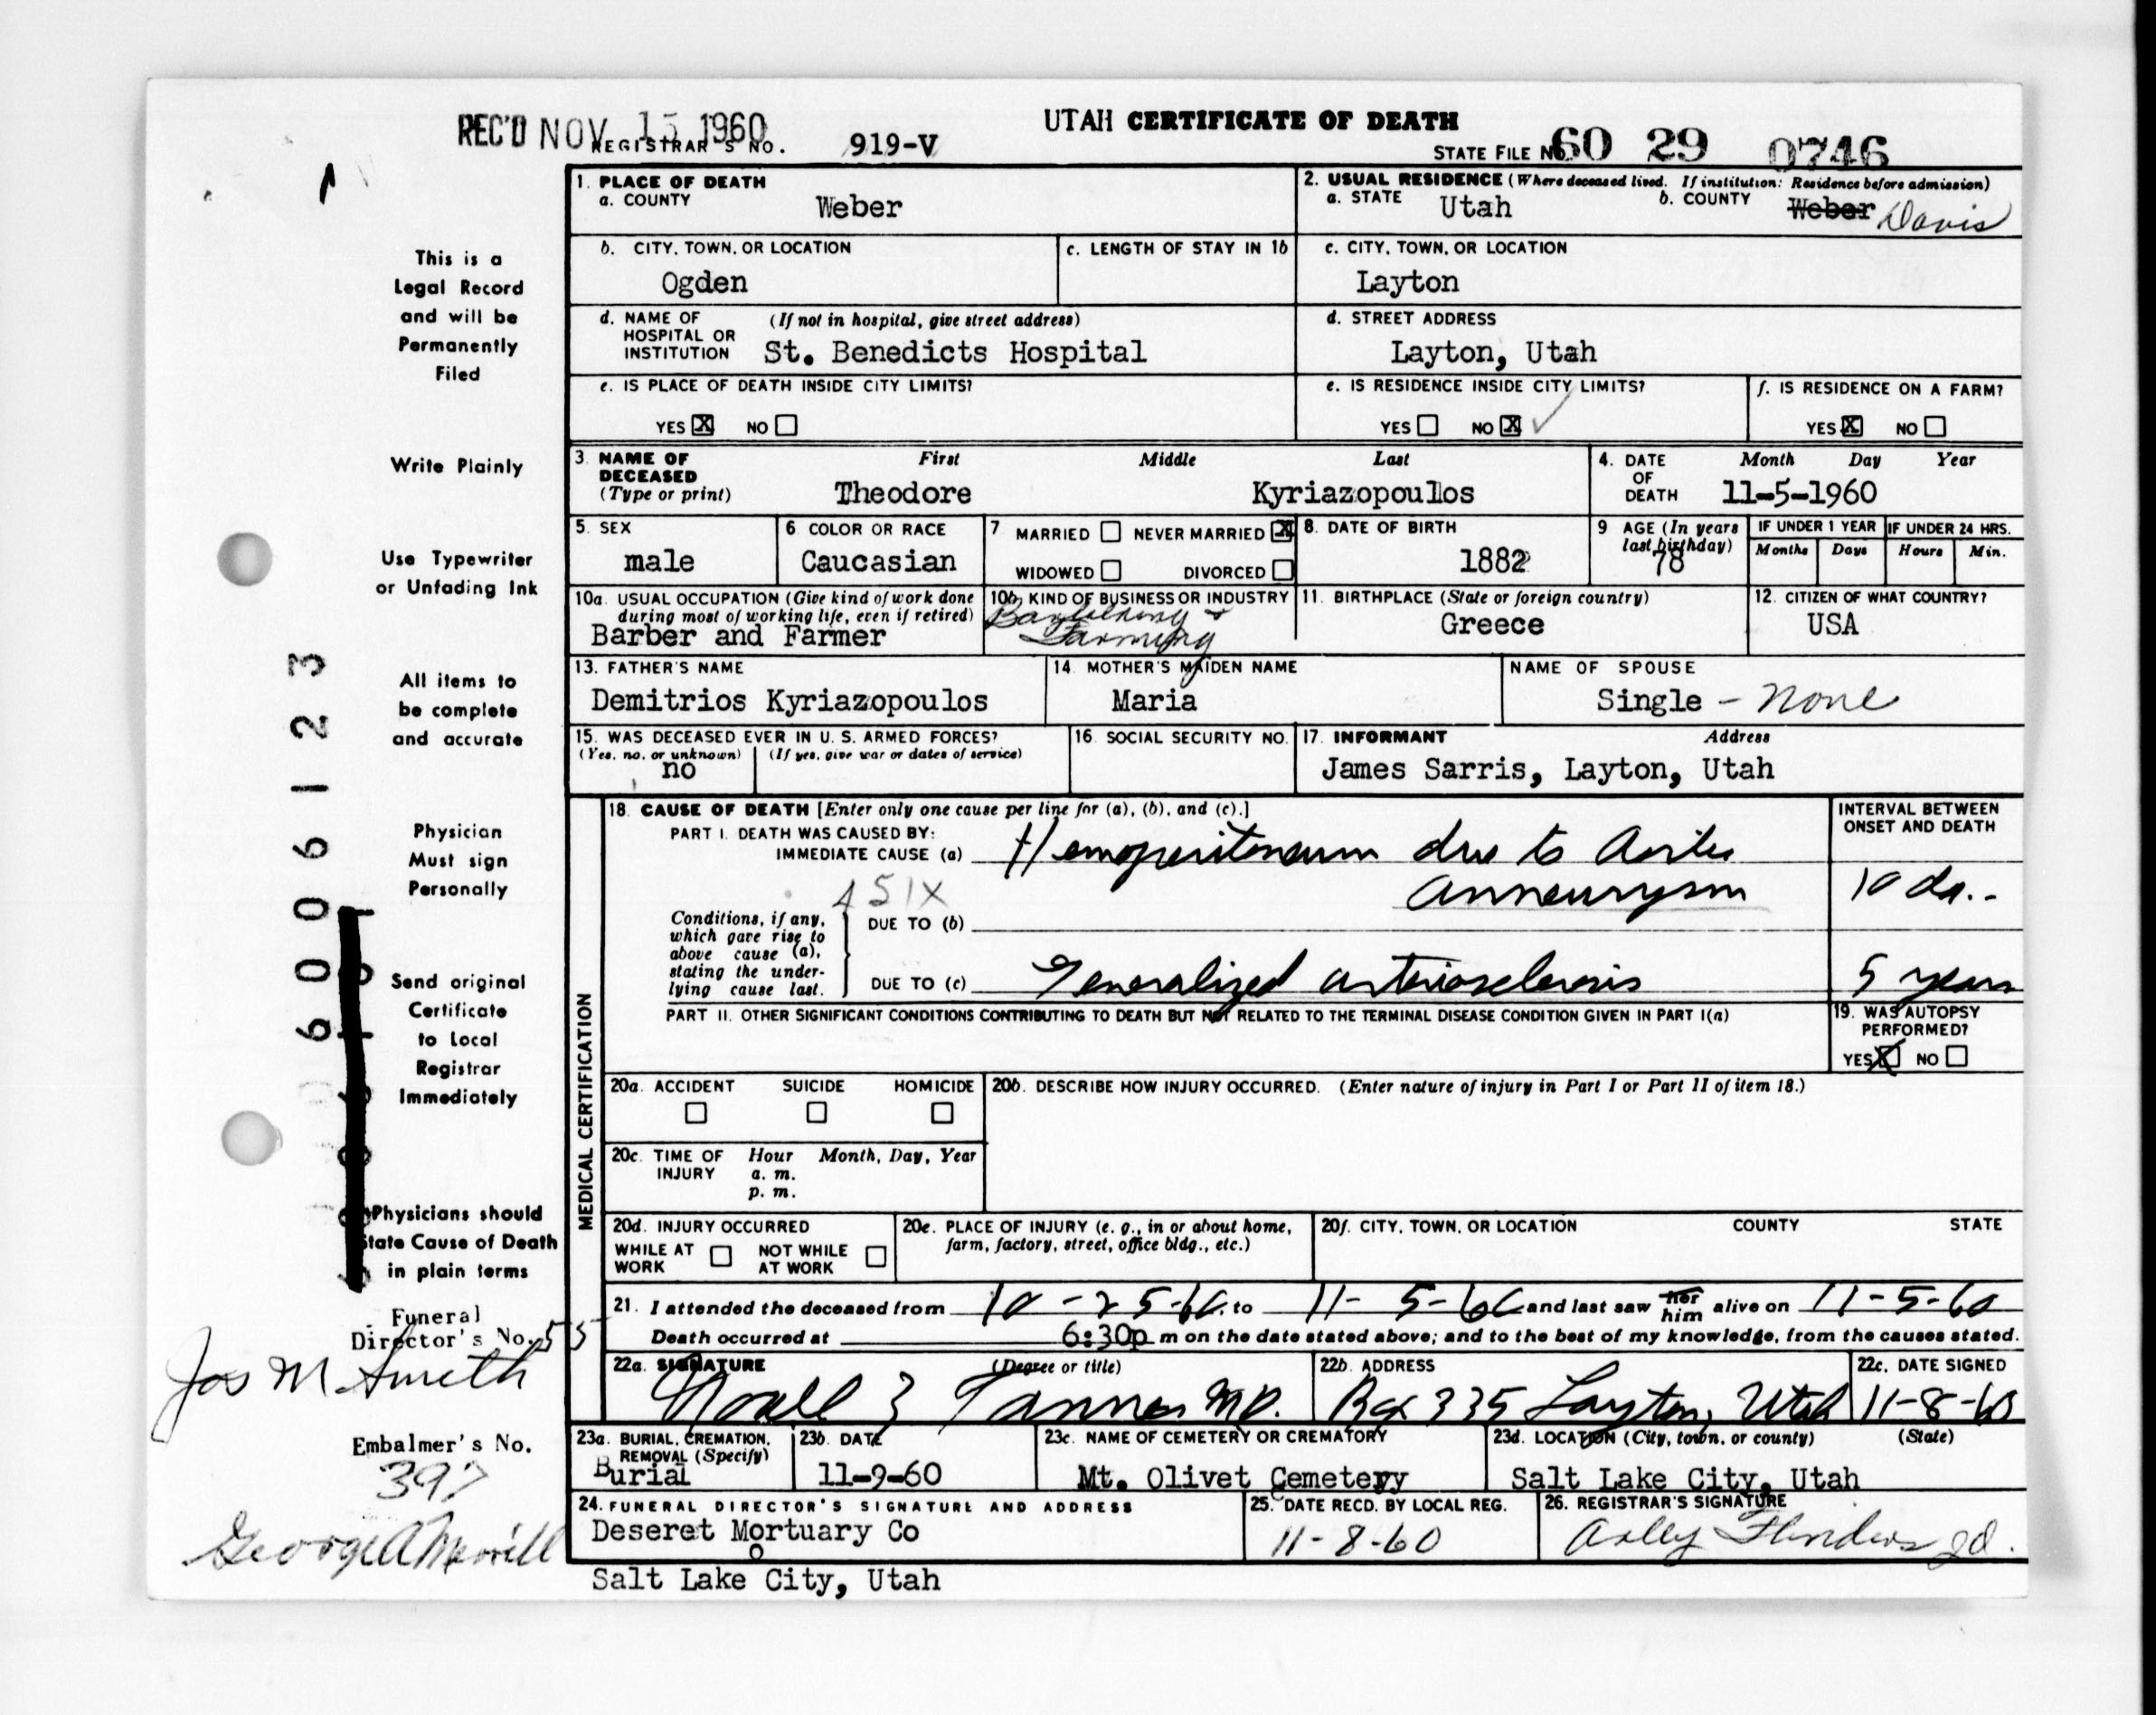 REC'D NOV 15 1960
REGISTRAR'S NO. 919-V
UTAH CERTIFICATE OF DEATH
STATE FILE NO. 60 29 0746
1. PLACE OF DEATH
a. COUNTY Weber
2. USUAL RESIDENCE (Where deceased lived. If institution: Residence before admission)
a. STATE Utah b. COUNTY Weber Davis
b. CITY, TOWN, OR LOCATION
Ogden
c. LENGTH OF STAY IN 1b
c. CITY, TOWN, OR LOCATION
Layton
d. NAME OF HOSPITAL OR INSTITUTION (If not in hospital, give street address)
St. Benedicts Hospital
d. STREET ADDRESS
Layton, Utah
e. IS PLACE OF DEATH INSIDE CITY LIMITS?
YES X NO
e. IS RESIDENCE INSIDE CITY LIMITS?
YES NO X
f. IS RESIDENCE ON A FARM?
YES X NO
3. NAME OF DECEASED (Type or print) First Middle Last
Theodore Kyriazopoulos
4. DATE OF DEATH Month Day Year
11-5-1960
5. SEX
male
6 COLOR OR RACE
Caucasian
7 MARRIED NEVER MARRIED X
WIDOWED DIVORCED
8. DATE OF BIRTH
1882
9 AGE (In years last birthday)
78
IF UNDER 1 YEAR
Months Days
IF UNDER 24 HRS.
Hours Min.
10a. USUAL OCCUPATION (Give kind of work done during most of working life, even if retired)
Barber and Farmer
10b. KIND OF BUSINESS OR INDUSTRY
Farming
11. BIRTHPLACE (State or foreign country)
Greece
12. CITIZEN OF WHAT COUNTRY?
USA
13. FATHER'S NAME
Demitrios Kyriazopoulos
14. MOTHER'S MAIDEN NAME
Maria
NAME OF SPOUSE
Single - None
15. WAS DECEASED EVER IN U. S. ARMED FORCES?
(Yes, no, or unknown) (If yes, give war or dates of service)
no
16. SOCIAL SECURITY NO.
17. INFORMANT Address
James Sarris, Layton, Utah
MEDICAL CERTIFICATION
18. CAUSE OF DEATH [Enter only one cause per line for (a), (b), and (c).]
INTERVAL BETWEEN ONSET AND DEATH
PART I. DEATH WAS CAUSED BY:
IMMEDIATE CAUSE (a) Hemoperitoneum due to Aortic
anneurysm 10 da.
451X
Conditions, if any, which gave rise to above cause (a), stating the underlying cause last.
DUE TO (b)
DUE TO (c) Generalized arteriosclerosis 5 years
PART II. OTHER SIGNIFICANT CONDITIONS CONTRIBUTING TO DEATH BUT NOT RELATED TO THE TERMINAL DISEASE CONDITION GIVEN IN PART I(a)
19. WAS AUTOPSY PERFORMED?
YES X NO
20a. ACCIDENT SUICIDE HOMICIDE
20b. DESCRIBE HOW INJURY OCCURRED. (Enter nature of injury in Part I or Part II of item 18.)
20c. TIME OF INJURY Hour Month, Day, Year
a. m.
p. m.
20d. INJURY OCCURRED
WHILE AT WORK NOT WHILE AT WORK
20e. PLACE OF INJURY (e. g., in or about home, farm, factory, street, office bldg., etc.)
20f. CITY, TOWN, OR LOCATION COUNTY STATE
21. I attended the deceased from 10-25-60, to 11-5-60 and last saw her him alive on 11-5-60
Death occurred at 6:30p m on the date stated above; and to the best of my knowledge, from the causes stated.
22a. SIGNATURE (Degree or title)
Noall Z Tanner M.D.
22b. ADDRESS
Box 335 Layton, Utah
22c. DATE SIGNED
11-8-60
23a. BURIAL, CREMATION, REMOVAL (Specify)
Burial
23b. DATE
11-9-60
23c. NAME OF CEMETERY OR CREMATORY
Mt. Olivet Cemetery
23d. LOCATION (City, town, or county) (State)
Salt Lake City, Utah
24. FUNERAL DIRECTOR'S SIGNATURE AND ADDRESS
Deseret Mortuary Co
Salt Lake City, Utah
25. DATE RECD. BY LOCAL REG.
11-8-60
26. REGISTRAR'S SIGNATURE
Flinders
This is a
Legal Record
and will be
Permanently
Filed
Write Plainly
Use Typewriter
or Unfading Ink
All items to
be complete
and accurate
Physician
Must sign
Personally
Send original
Certificate
to Local
Registrar
Immediately
Physicians should
State Cause of Death
in plain terms
Funeral
Director's No. 55
Jos M Smith
Embalmer's No.
397
George A Merrill
6006123